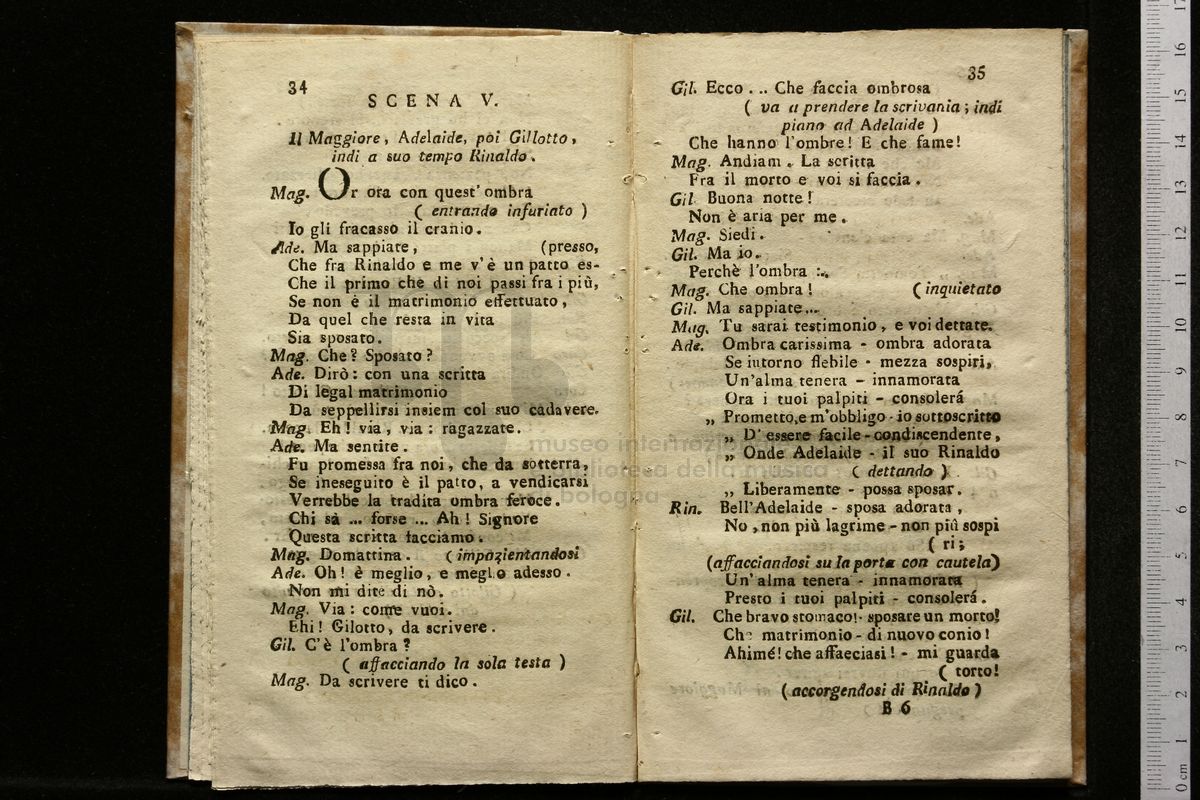 34
SCENA V.
Il Maggiore, Adelaide, poi Gillotto,
indi a suo tempo Rinaldo.
Mag. Or ora con quest' ombra
( entrando infuriato )
Io gli fracasso il cranio.
Ade. Ma sappiate, (presso,
Che fra Rinaldo e me v'è un patto es-
Che il primo che di noi passi fra i più,
Se non è il matrimonio effettuato,
Da quel che resta in vita
Sia sposato.
Mag. Che? Sposato?
Ade. Dirò: con una scritta
Di legal matrimonio
Da seppellirsi insiem col suo cadavere.
Mag. Eh! via, via: ragazzate.
Ade. Ma sentite.
Fu promessa fra noi, che da sotterra,
Se ineseguito è il patto, a vendicarsi
Verrebbe la tradita ombra feroce.
Chi sà ... forse ... Ah! Signore
Questa scritta facciamo.
Mag. Domattina. ( impazientandosi
Ade. Oh! è meglio, e meglio adesso.
Non mi dite di nò.
Mag. Via: come vuoi.
Ehi! Gilotto, da scrivere.
Gil. C'è l'ombra?
( affacciando la sola testa )
Mag. Da scrivere ti dico.
35
Gil. Ecco... Che faccia ombrosa
( va a prendere la scrivania; indi
piano ad Adelaide )
Che hanno l'ombre! E che fame!
Mag. Andiam. La scritta
Fra il morto e voi si faccia.
Gil. Buona notte!
Non è aria per me.
Mag. Siedi.
Gil. Ma io..
Perchè l'ombra ...
Mag. Che ombra! ( inquietato
Gil. Ma sappiate...
Mag. Tu sarai testimonio, e voi dettate.
Ade. Ombra carissima - ombra adorata
Se iutorno flebile - mezza sospiri,
Un'alma tenera - innamorata
Ora i tuoi palpiti - consolerá
„ Prometto, e m'obbligo - io sottoscritto
„ D'essere facile - condiscendente,
„ Onde Adelaide - il suo Rinaldo
( dettando )
„ Liberamente - possa sposar.
Rin. Bell'Adelaide - sposa adorata,
No, non più lagrime - non più sospi
( ri;
(affacciandosi su la porta con cautela)
Un'alma tenera - innamorata
Presto i tuoi palpiti - consolerá.
Gil. Che bravo stomaco! - sposare un morto!
Che matrimonio - di nuovo conio!
Ahimé! che affaeciasi! - mi guarda
( torto!
(accorgendosi di Rinaldo)
B 6
museo internazionale
biblioteca della musica
bologna
0 cm 1 2 3 4 5 6 7 8 9 10 11 12 13 14 15 16 17